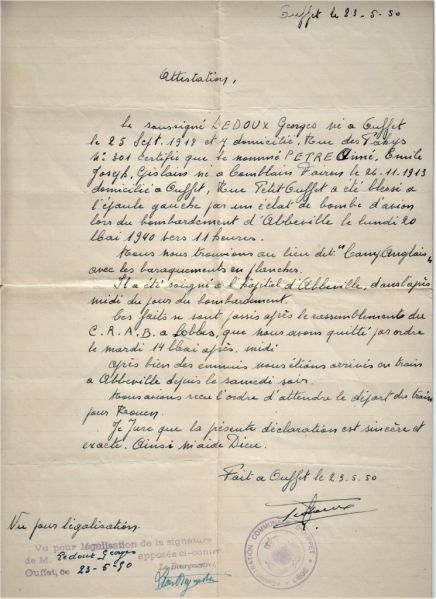 Ouffet le 23-5-50
Attestation,
Le soussigné LEDOUX Georges né à Ouffet
le 25 Sept. 1918 et y domicilié, Rue des Pahys
N° 301 certifie que le nommé PETRE Aimé, Emile
Joseph, Gislains né à Comblain Fairon le 26.11.1913
domicilié à Ouffet, Rue Petit Ouffet a été blessé à
l'épaule gauche par un éclat de bombe d'avion
lors du bombardement d'Abbeville le lundi 20
Mai 1940 vers 11 heures.
Nous nous trouvions au lieu dit: "Camp Anglais"
avec les baraquements en planches.
Il a été soigné à l'hôpital d'Abbeville, dans l'après
midi du jour du bombardement.
Ces faits se sont passés après le rassemblement du
C.R.A.B. à Lobbes, que nous avons quitté par ordre
le mardi 14 Mai après-midi
Après bien des ennuis nous étions arrivés en train
à Abbeville depuis le samedi soir.
Nous avions reçu l'ordre d'attendre le départ du train
pour Rouen.
Je Jure que la présente déclaration est sincère et
exacte. Ainsi m'aide Dieu.
Fait à Ouffet le 23.5.50
Vu pour légalisation.
Vu pour légalisation de la signature
de M. Ledoux Georges apposée ci-contre
Ouffet, le 23-5-50 Le Bourgmestre,
ADMINISTRATION COMMUNALE OUFFET
LIÈGE